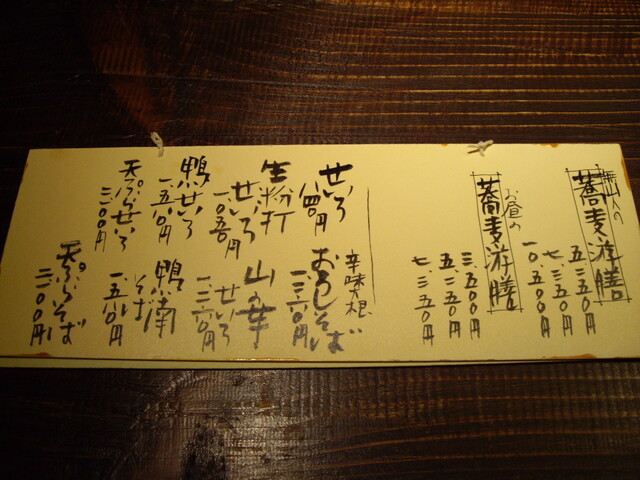 蕎麦游膳
五、二五〇円
七、三五〇円
一〇、五〇〇円
お昼の
蕎麦游膳
三、一五〇円
五、二五〇円
七、三五〇円
せいろ
八四〇円
辛味大根
おろしそば
一、二六〇円
生粉打
せいろ
一、〇五〇円
山の芋
せいろ
一、二六〇円
鴨せいろ
鴨南
そば
天ぷらせいろ
二、一〇〇円
天ぷらそば
二、一〇〇円